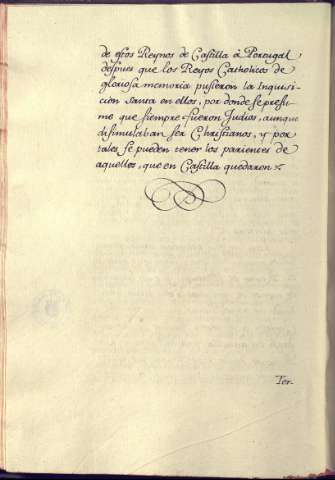 de estos Reynos de Castilla â Portugal
despues que los Reyes Catholicos de
gloriosa memoria pusieron la Inquisi-
cion santa en ellos, por donde se presu-
me que siempre fueron Judios, aunque
disimulaban ser Christianos, y por
tales se pueden tener los parientes de
aquellos, que en Castilla quedaron
Ter-